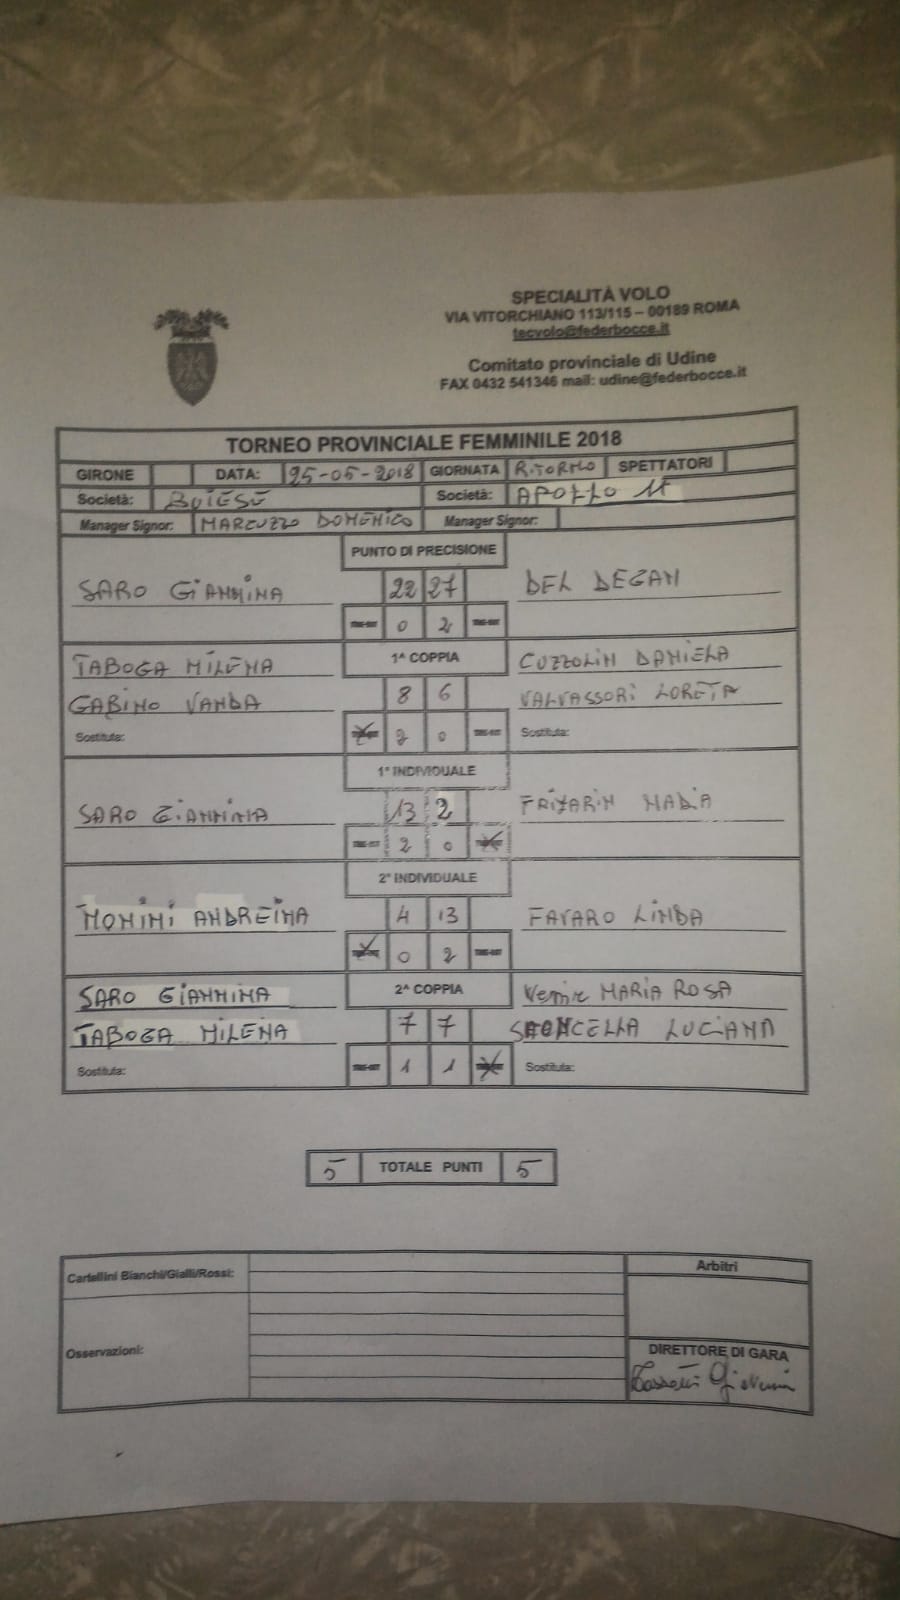 SPECIALITÀ VOLO
VIA VITORCHIANO 113/115 – 00189 ROMA
tecvolo@federbocce.it
Comitato provinciale di Udine
FAX 0432 541346 mail: udine@federbocce.it
TORNEO PROVINCIALE FEMMINILE 2018
GIRONE DATA: 25-05-2018 GIORNATA RITORNO SPETTATORI
Società: BUIESE Società: APOLLO
Manager Signor: MARCUZZO DOMENICO Manager Signor:
PUNTO DI PRECISIONE
SARO GIANNINA 22 27 DEL DEGAN
0 2
TABOGA MILENA 1^ COPPIA CUZZOLIN DANIELA
GABINO VANDA 8 6 VALVASSORI LORETA
Sostituta: 2 0 Sostituta:
1° INDIVIDUALE
SARO GIANNINA 13 2 MARIA
2 0
2° INDIVIDUALE
MONINI ANDREINA 4 13 FAVARO LINDA
0 2
SARO GIANNINA 2^ COPPIA MARIA ROSA
TABOGA MILENA 7 7 LUCIANA
Sostituta: 1 1 Sostituta:
5 TOTALE PUNTI 5
Cartellini Bianchi/Gialli/Rossi: Arbitri
Osservazioni:
DIRETTORE DI GARA